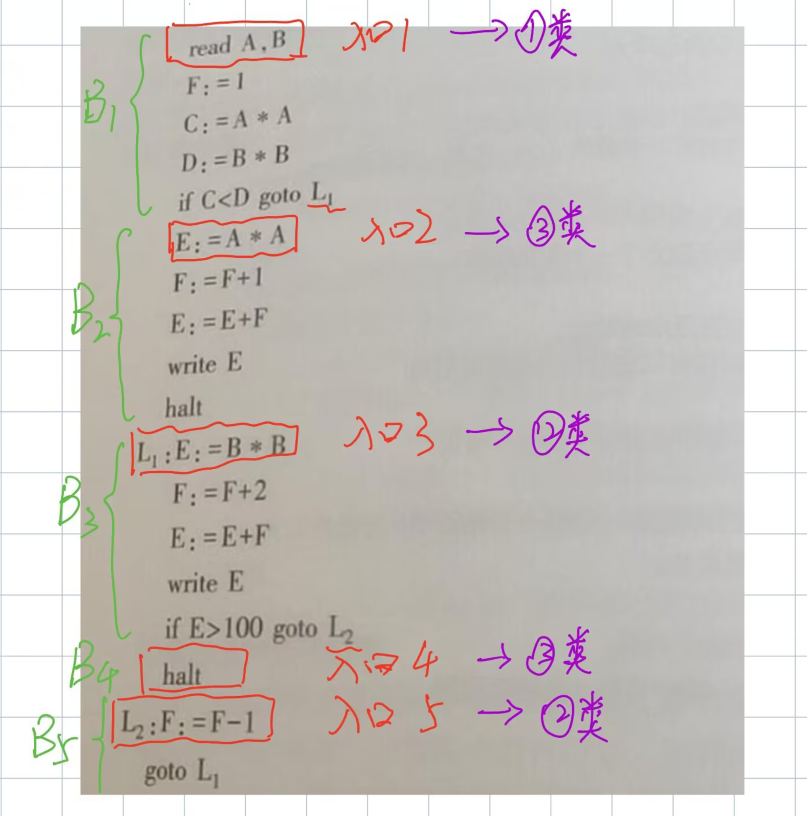 B₁ read A,B 入口1 → ①类
F:=1
C:=A * A
D:=B * B
if C<D goto L₁
B₂ E:=A * A 入口2 → ③类
F:=F+1
E:=E+F
write E
halt
B₃ L₁:E:=B * B 入口3 → ②类
F:=F+2
E:=E+F
write E
if E>100 goto L₂
B₄ halt 入口4 → ③类
B₅ L₂:F:=F-1 入口5 → ②类
goto L₁